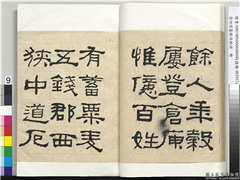 餘人年穀
屢登倉庾
惟億百姓
有蓄粟麦
五錢郡西
狭中道危
9